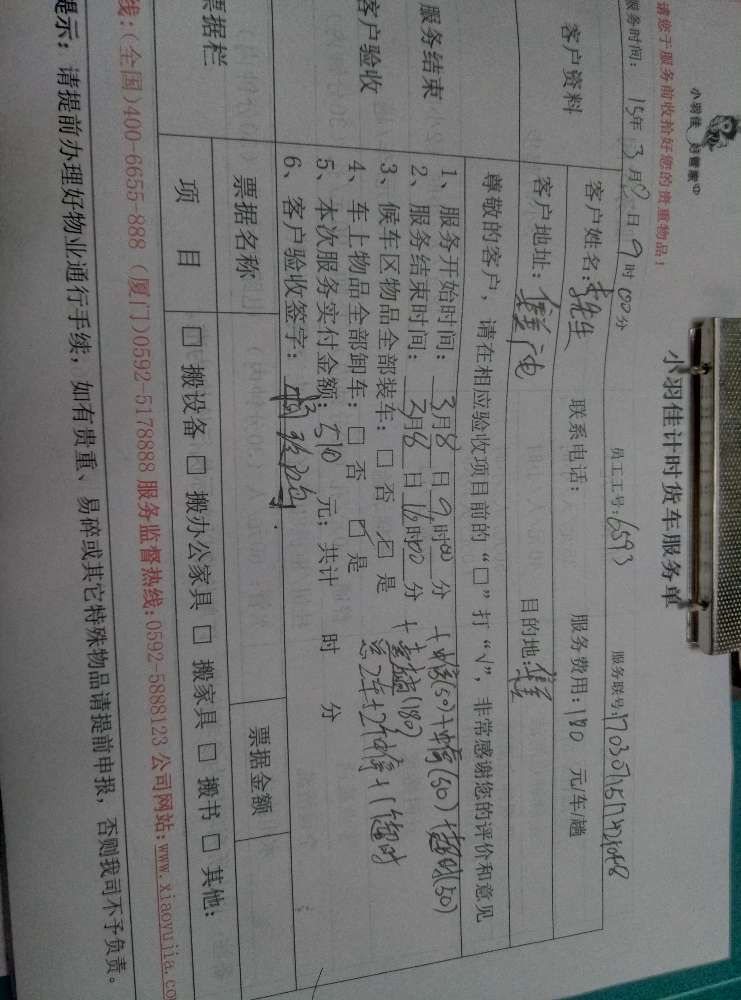 小羽佳 好管家
小羽佳计时货车服务单
请您于服务前收拾好您的贵重物品!
员工工号: 6593 服务联号:
服务时间: 15年 3月 8日 9时 00分
客户资料
客户姓名: 李先生 联系电话: 服务费用: 180 元/车/趟
客户地址: 集美广电 目的地: 集美
服务结束
客户验收
尊敬的客户，请在相应验收项目前的“□”打“√”，非常感谢您的评价和意见
1、服务开始时间: 3月8 日 9时00 分
2、服务结束时间: 3月8 日 时00 分
3、候车区物品全部装车: □ 否 ☑ 是
4、车上物品全部卸车: □ 否 ☑ 是
5、本次服务实付金额: 510 元; 共计 时 分
6、客户验收签字:
票据栏
票据名称 票据金额
项 目
□ 搬设备 □ 搬办公家具 □ 搬家具 □ 搬书 □ 其他:
线:(全国)400-6655-888 (厦门)0592-5178888 服务监督热线:0592-5888123 公司网站:www.xiaoyujia.co
提示: 请提前办理好物业通行手续，如有贵重、易碎或其它特殊物品请提前申报，否则我司不予负责。